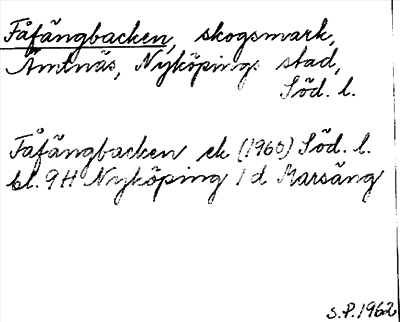 Fåfängbacken, skogsmark,
Åmtnäs, Nyköpings stad,
Söd. l.
Fåfängbacken ek (1960) Söd. l.
bl. 9H Nyköping 1 d Marsäng
S.P. 1962